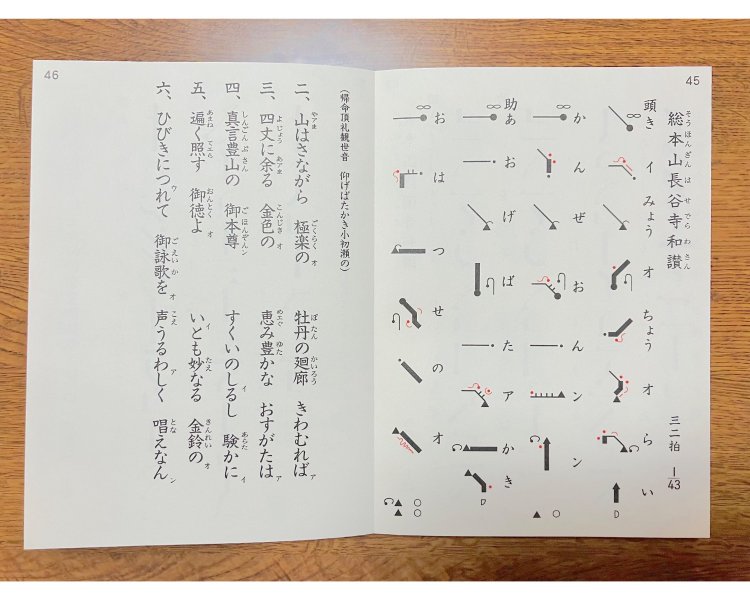 45
総本山長谷寺和讃 三二拍 1/43
そうほんざんはせでらわさん
頭 き イ みょう オ ちょう オ ら い
か ん ぜ お ん ン ン
助 あ お げ ば た ア か き
お は つ せ の オ
46
(帰命頂礼観世音 仰げばたかき小初瀬の)
二、山はさながら 極楽の 牡丹の廻廊 きわむれば
三、四丈に余る 金色の 恵み豊かな おすがたは
四、真言豊山の 御本尊 すくいのしるし 験かに
五、遍く照す 御徳よ いとも妙なる 金鈴の
六、ひびきにつれて 御詠歌を 声うるわしく 唱えなん